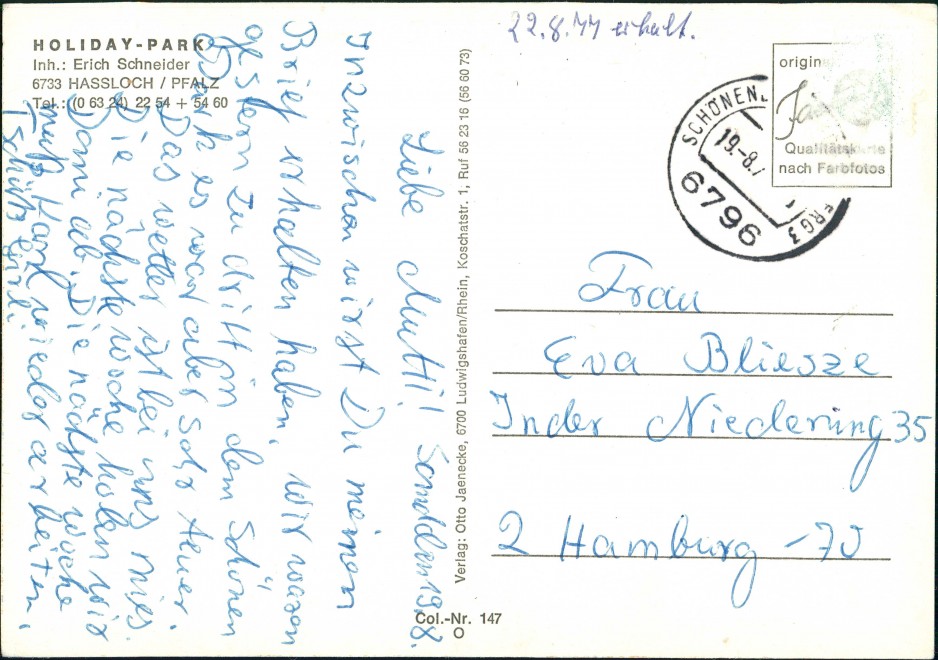 HOLIDAY-PARK
Inh.: Erich Schneider
6733 HASSLOCH / PFALZ
Tel.: (0 63 24) 22 54 + 54 60
Liebe Mutti! Sam. den 19.8.
Inzwischen wirst Du meinen
Brief erhalten haben, wir waren
gestern zu dritt in dem Schönen
Park es war aber sehr teuer.
Das wetter ist bei uns mies.
Die nächste woche holen wir
Dani ab. Die nächste woche
muß Karl wieder arbeiten.
Tschüß
Verlag: Otto Jaenecke, 6700 Ludwigshafen/Rhein, Koschatstr. 1, Ruf 56 23 16 (56 60 73)
Col.-Nr. 147
22.8.77 erhalt.
origin
Qualitätskarte
nach Farbfotos
SCHÖNEN
19.-8.
6796
RG 3
Frau
Eva Bliesze
In der Niederung 35
2 Hamburg -70